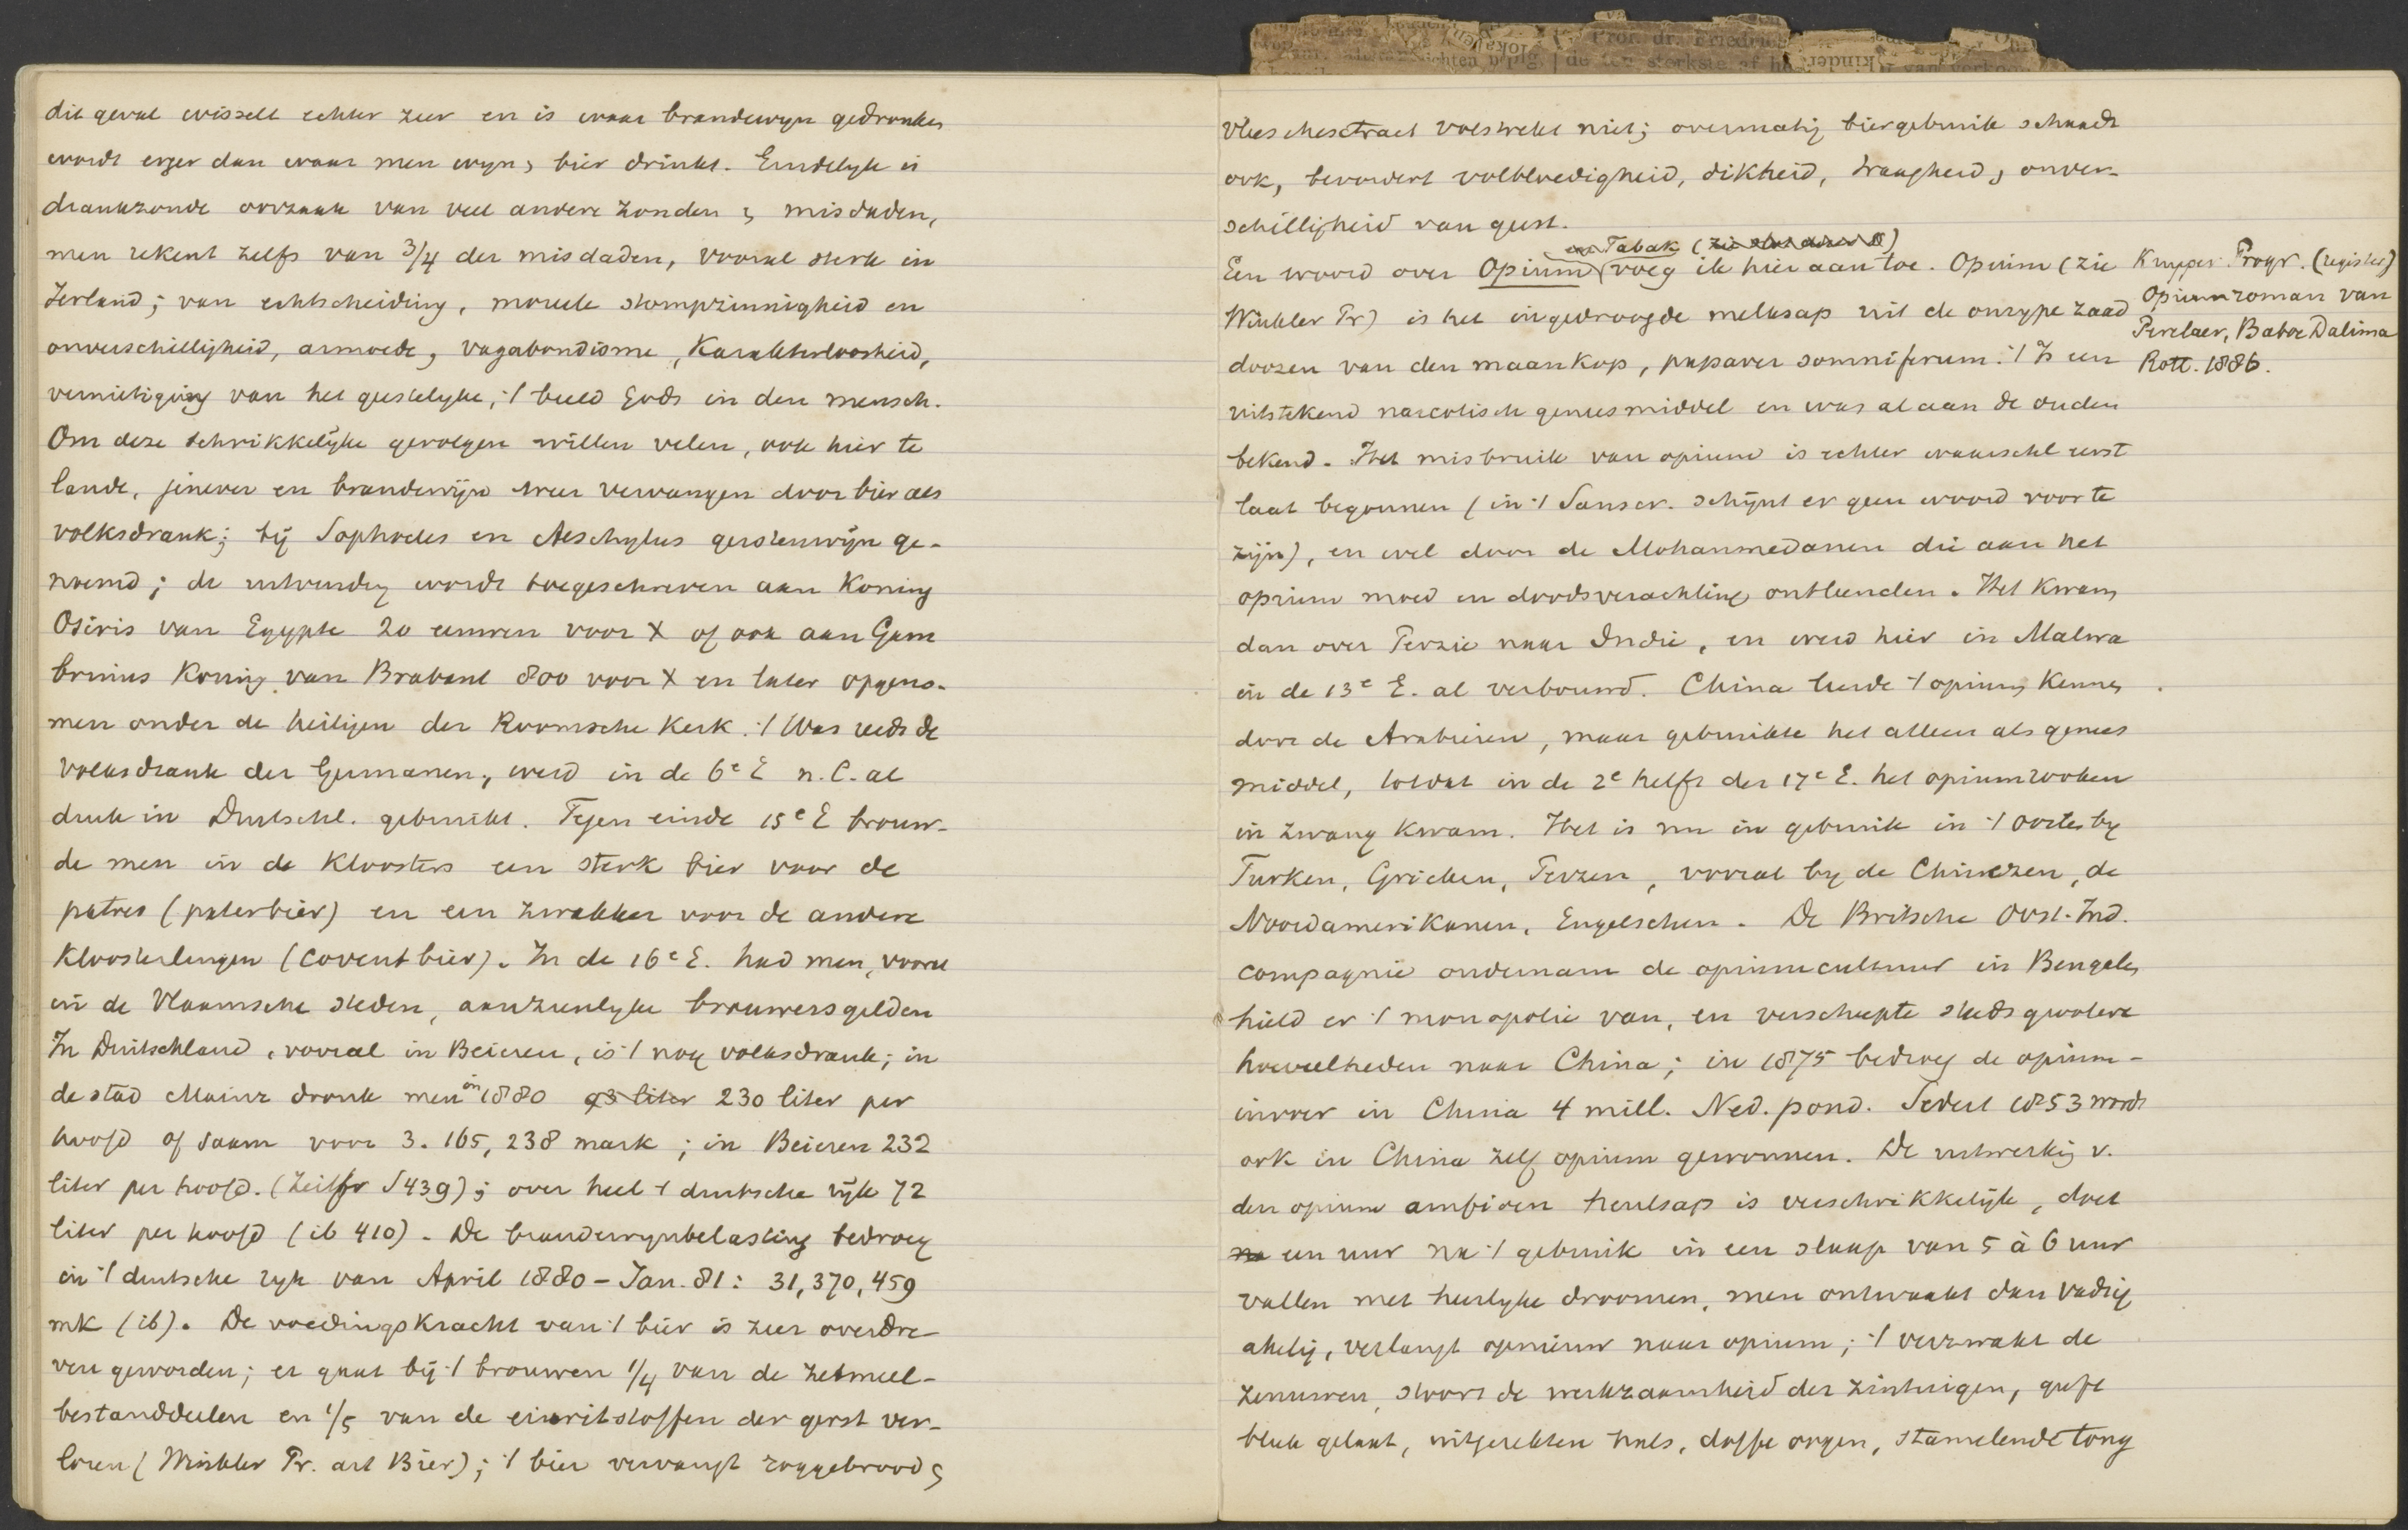 dit geval wisselt echter zeer en is waar brandewyn gedronken
wordt erger dan waar men wyn, bier drinkt. Eindelyk is
drankzonde oorzaak van veel andere zonden & misdaden,
men rekent zelfs van 3/4 der misdaden, vooral sterk in
Ierland; van echtscheiding, moreele stompzinnigheid en
onverschilligheid, armoede, vagabondisme, Karakterloosheid,
vernietiging van het geestelyke, 't beeld Gods in den mensch.
Om deze schrikkelijke gevolgen willen velen, ook hier te
lande, jenever en brandewijn weer vervangen door bier als
volksdrank; bij Sophocles en Aeschylus gerstenwijn ge-
noemd; de uitvinding wordt toegeschreven aan Koning
Osiris van Egypte 20 eeuwen voor X of ook aan Gam
brinius Koning van Brabant 800 voor X en later opgeno-
men onder de heiligen der Roomsche Kerk. 't Was reeds de
volksdrank der Germanen, werd in de 6e E n.C. al
druk in Duitschl. gebruikt. Tegen einde 15e E brouw-
de men in de Kloosters een sterk bier voor de
patres (paterbier) en een zwakker voor de andere
Kloosterlingen (Covent bier). In de 16e E. had men, vooral
in de Vlaamsche steden, aanzienlyke brouwersgilden
In Duitschland, vooral in Beieren, is 't nog volksdrank; in
de stad Mainz dronk men in 1880 93 liter 230 liter per
hoofd of saam voor 3.165,238 mark; in Beieren 232
liter per hoofd. (Zeitfr S 439); over heel 't duitsche rijk 72
liter per hoofd (ib 410). De brandewynbelasting bedroeg
in 't duitsche ryk van April 1880 - Jan. 81: 31,370,459
mk (ib). De voedingskracht van 't bier is zeer overdre
ven geworden; er gaat bij 't brouwen 1/4 van de zetmeel-
bestanddeelen en 1/5 van de eiwitstoffen der gerst ver-
loren (Winkler Pr. art Bier); 't bier vervangt roggebrood &
vleeschextract volstrekt niet; overmatig biergebruik schaadt
ook, bevordert volbloedigheid, dikheid, traagheid, onver-
schilligheid van geest.
en Tabak (
Een woord over Opium voeg ik hier aan toe. Opium (zie
Winkler Pr) is het ingedroogde melksap uit de onrype zaad
doozen van den maankop, papaver somniferum. 't Is een
uitstekend narcotisch geneesmiddel en was al aan de ouden
bekend. Het misbruik van opium is echter waarschl eerst
laat begonnen (in 't Sanscr. schijnt er geen woord voor te
zijn), en wel door de Mohammedanen die aan het
opium moed en doodsverachting ontleenden. Het Kwam
dan over Perzie naar Indie, en werd hier in Malwa
in de 13e E. al verbouwd. China leerde 't opium Kennen
door de Arabieren, maar gebruikte het alleen als genees
middel, totdat in de 2e helft der 17e E. het opiumrooken
in zwang Kwam. Het is nu in gebruik in 't oosten by
Turken, Grieken, Perzen, vooral by de Chineezen, de
Noordamerikanen, Engelschen. De Britsche Oost-Ind.
compagnie ondernam de opiumcultuur in Bengalen
hield er 't monopolie van, en verscheepte steeds grootere
hoeveelheden naar China; in 1875 bedroeg de opium-
invoer in China 4 mill. Ned. pond. Sedert 1853 wordt
ook in China zelf opium gewonnen. De uitwerking v.
den opium amfioen heulsap is verschrikkelijk, doet
na een uur na 't gebruik in een slaap van 5 à 6 uur
vallen met heerlyke droomen, men ontwaakt dan vadsig
akelig, verlangt opnieuw naar opium; 't verzwakt de
zenuwen, stoort de werkzaamheid der zintuigen, geeft
bleek gelaat, uitgerekten hals, doffe oogen, stamelende tong
Kuyper. Progr. (register)
Opiumroman van
Perelaer, Baboe Dalima
Rott. 1886.